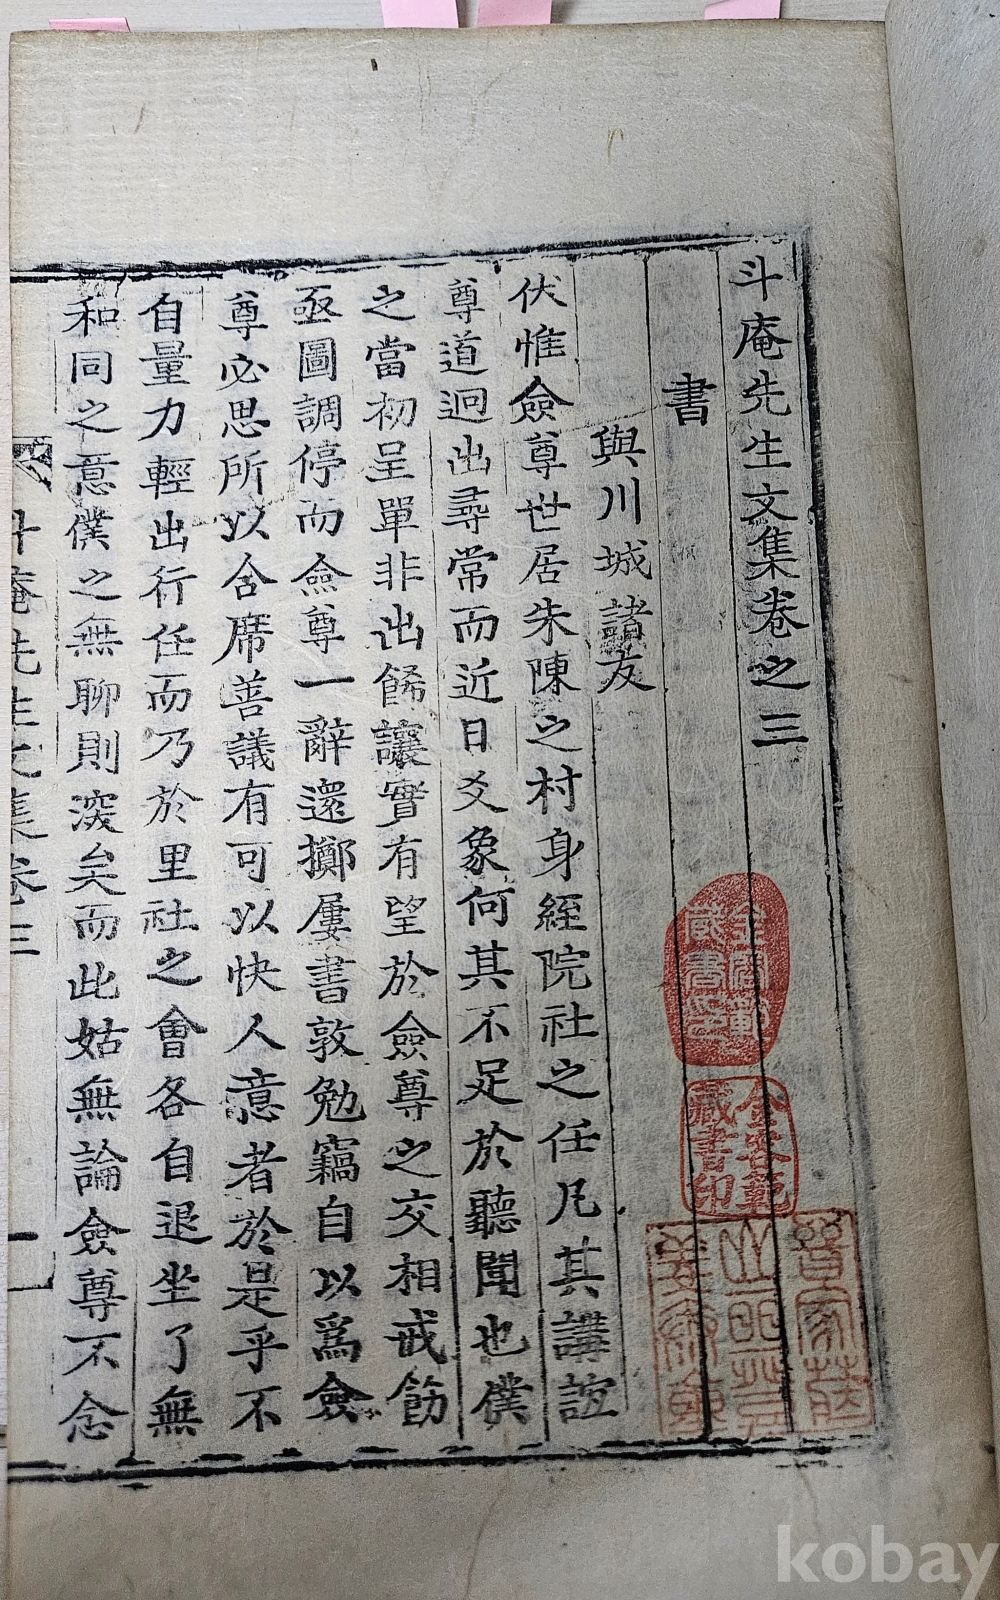 斗庵先生文集卷之三
書
與川城諸友
伏惟僉尊世居朱陳之村身經院社之任凡其講誼
尊道迥出尋常而近日爻象何其不足於聽聞也僕
之當初呈單非出餙讓實有望於僉尊之交相戒飭
亟圖調停而僉尊一辭還擲屢書敦勉竊自以爲僉
尊必思所以合席善議有可以快人意者於是乎不
自量力輕出行任而乃於里社之會各自退坐了無
和同之意僕之無聊則深矣而此姑無論僉尊不念
斗庵先生文集卷三
一
藏書印
kobay